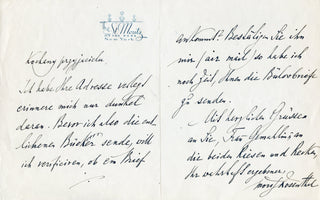 St. Moritz
Kochany przyjacielu
Ich habe Ihre Adresse verlegt
erinnere mich nur dunkel
daran. Bevor ich also die ent-
liehenen Bücher sende, will
ich verificiren, ob ein Brief
ankommt? Bestätigen Sie ihn
mir (air mail) so habe ich
noch Zeit, Ihnen die Bülowbriefe
zu senden.
Mit herzlichen Grüssen
an Sie, Frau Gemahlin, an
die beiden Riesen und
Ihr wahrhaft ergebener
Moriz Rosenthal